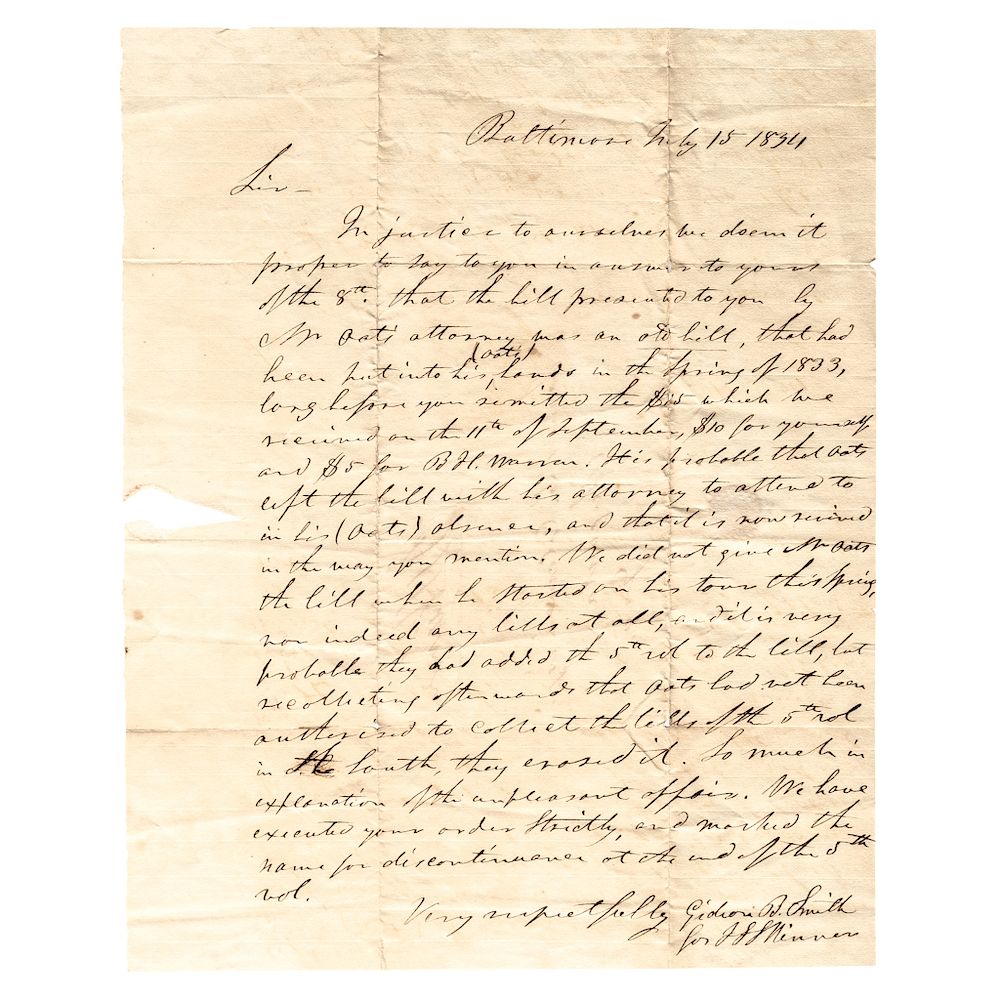 Baltimore July 15 1834
Sir –
In justice to ourselves we deem it
proper to say to you in answer to yours
of the 8th. that the bill presented to you by
Mr Oats attorney was an old bill, that had
been put into his (Oats) hands in the Spring of 1833,
long before you remitted the $15 which we
received on the 11th of September, $10 for yourself
and $5 for B H. Warren. It is probable that Oats
left the bill with his attorney to attend to
in his (Oats) absence, and that it is now revived
in the way you mention. We did not give Mr Oats
the bill when he started on his tour this Spring,
nor indeed any bills at all, and it is very
probable they had added the 5th vol to the bill, but
recollecting afterwards that Oats had not been
authorised to collect the bills of the 5th vol
in the South, they erased it. So much in
explanation of the unpleasant affair. We have
executed your order strictly, and marked the
name for discontinuance at the end of the 5th
vol.
Very respectfully Gideon B. Smith
for J S Skinner